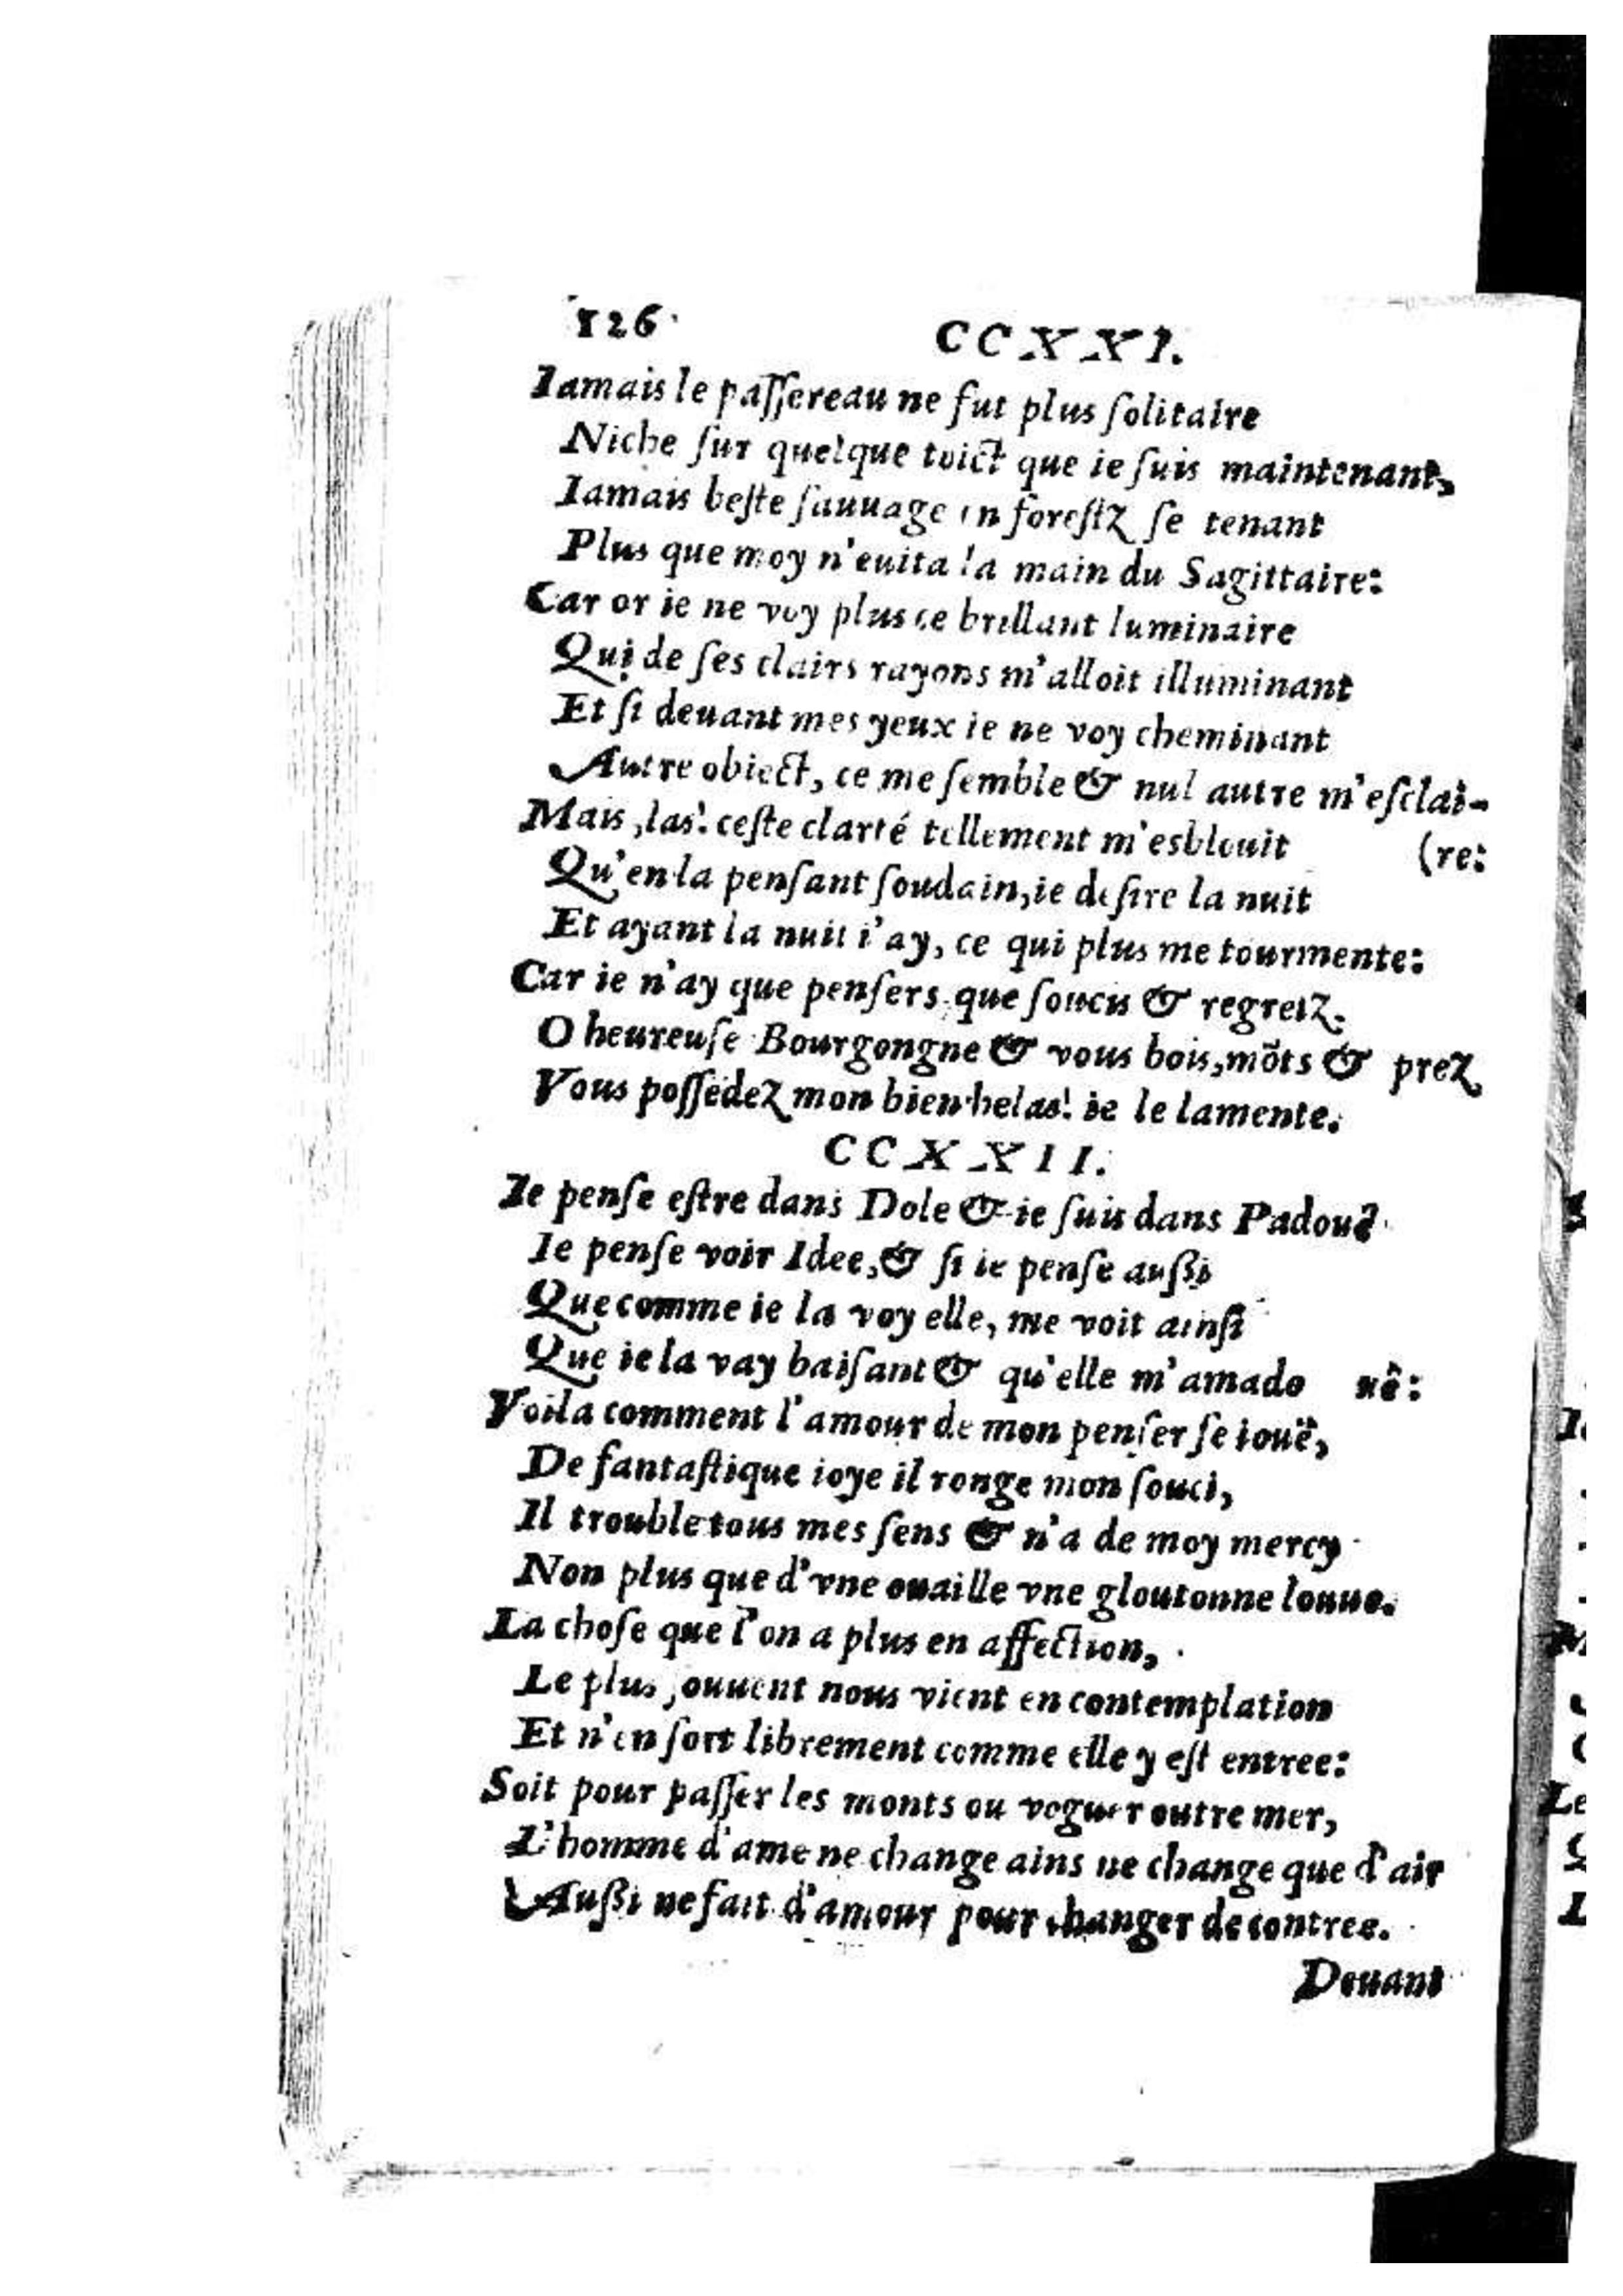 126
CCXXI.
Iamais le paſſereau ne fut plus ſolitaire
Niche ſur quelque toict que ie ſuis maintenant,
Iamais beſte ſauuage en foreſtz ſe tenant
Plus que moy n'euita la main du Sagittaire:
Car or ie ne voy plus ce brillant luminaire
Qui de ſes clairs rayons m'alloit illuminant
Et ſi deuant mes yeux ie ne voy cheminant
Autre obiect, ce me ſemble & nul autre m'eſclai-
Mais, las! ceſte clarté tellement m'esblouit (re:
Qu'en la penſant ſoudain, ie deſire la nuit
Et ayant la nuit i'ay, ce qui plus me tourmente:
Car ie n'ay que penſers que ſoucis & regretz.
O heureuſe Bourgongne & vous bois, mõts & prez
Vous poſſedez mon bien helas! ie le lamente.
CCXXII.
Ie penſe eſtre dans Dole & ie ſuis dans Padouë
Ie penſe voir Idee, & ſi ie penſe auſſi
Que comme ie la voy elle, me voit ainſi
Que ie la vay baiſant & qu'elle m'amado uë:
Voila comment l'amour de mon penſer ſe iouë,
De fantaſtique ioye il ronge mon ſouci,
Il trouble tous mes ſens & n'a de moy mercy
Non plus que d'vne ouaille vne gloutonne louue.
La choſe que l'on a plus en affection,
Le plus ſouuent nous vient en contemplation
Et n'en ſort librement comme elle y eſt entree:
Soit pour paſſer les monts ou voguer outre mer,
L'homme d'ame ne change ains ne change que d'air
Auſſi ne fait d'amour pour changer de contree.
Deuant